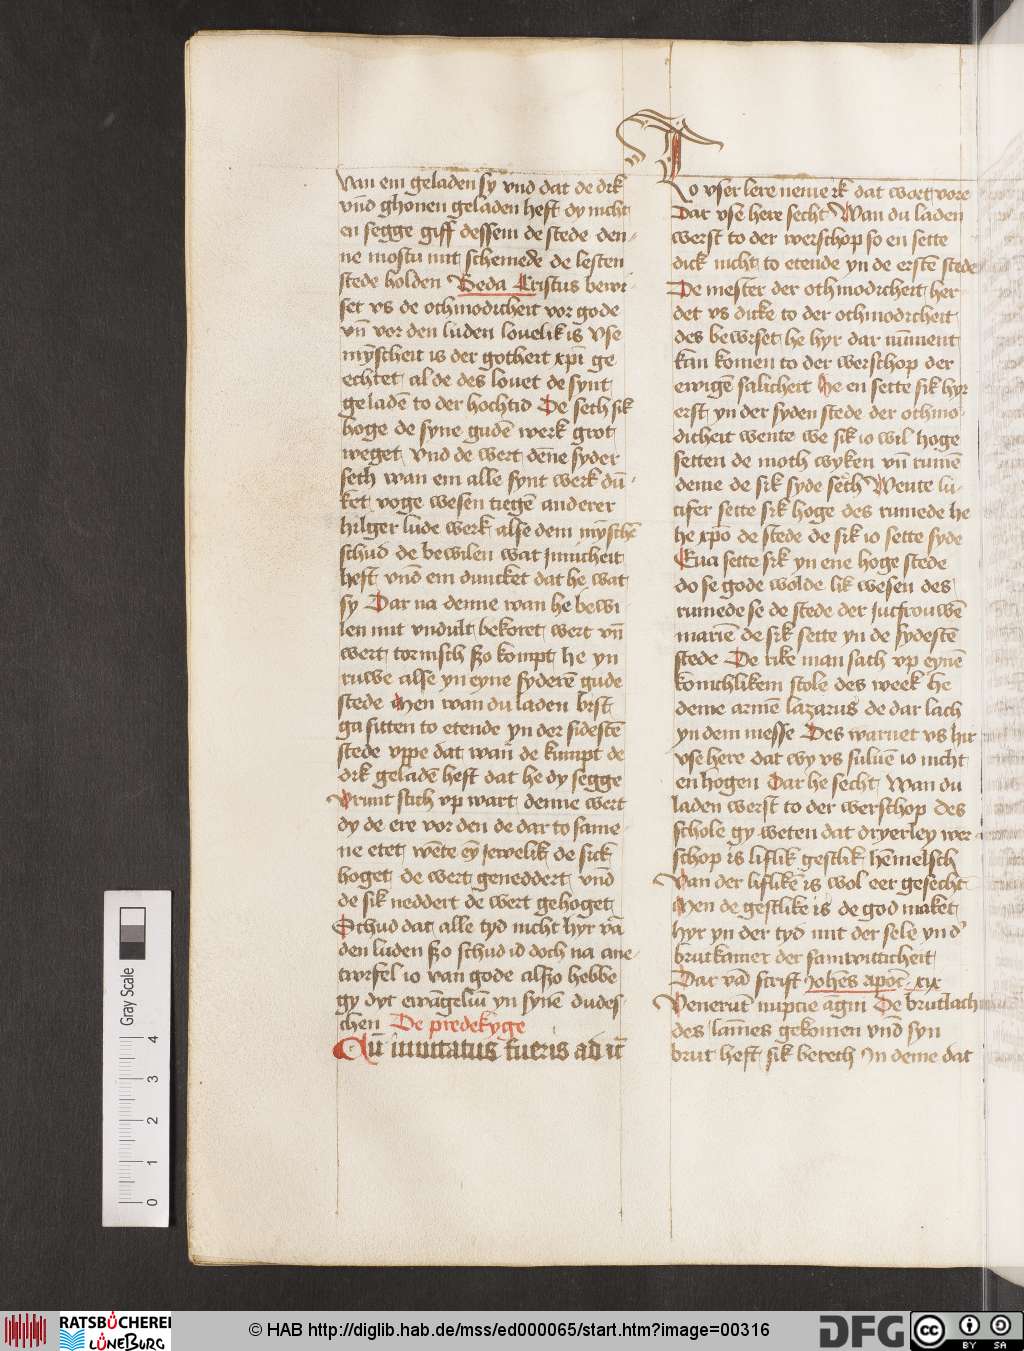 van em geladen sy vnd dat de dik
vnd ghonen geladen heft dy nicht
en segge giff dessem de stede den-
ne mostu mit schemede de lesten
stede holden Beda Cristus bewi-
set vs de othmodicheit vor gode
vn̄ vor den luden louelik is Vse
mȳscheit is der gotheit xp̄i ge
echtet al de des louet de synt
geladē to der hochtid De seth sik
hoge de syne gudē werk grot
weget vnd de wert dēne syder
seth wan em alle synt werk dū-
ket voge wesen tiegē anderer
hilger lude werk alse dem mȳschē
schud de bewilen wat jnnicheit
heft vnd em duncket dat he wat
sy Dar na denne wan he bewi-
len mit vndult bekoret wert vn̄
wert tornisch szo kompt he yn
ruwe alse yn eyne syderē gude
stede Men wan du laden bist
ga sitten to etende yn der sidestē
stede vppe dat wan̄ de kumpt de
dik geladē heft dat he dy segge
Vrunt stich vp wart denne wert
dy de ere vor den de dar to same-
ne etet wēte eȳ jewelik de sick
hoget de wert geneddert vnd
de sik neddert de wert gehoget
Schud dat alle tyd nicht hyr vā
den luden szo schud id doch na ane
twifel io van gode alszo hebbe
gy dyt ewāgeliū yn synē dudes-
chen De predekyge
Cū inuitatus fueris ad it̄
Jo vser lere neme ik dat woet vore
Dar vsē here secht Wan du laden
werst to der werschop so en sette
dick nicht to etende yn de erstē stede
De mester der othmodicheit her
det vs dicke to der othmodicheit
des bewiset he hyr dar nūment
kan komen to der werschop der
ewigē salicheit He en sette sik hyr
erst yn der syden stede der othmo
dicheit wente we sik io wil hoge
setten de moth wyken vn̄ rumē
deme de sik syde seth Wente lu-
cifer sette sik hoge des rumede he
he xp̄o de stede de sik io sette syde
Eua sette sik yn ene hoge stede
do se gode wolde lik wesen des
rumede se de stede der Jucfrouwē
mariē de sik sette yn de sydestē
stede De rike man sath vp eynē
konichlikem stole des week he
deme armē lazarus de dar lach
yn dem messe Des warnet vs hir
vse here dat wy vs suluē io nicht
en hogen Dar he secht Wan du
laden werst to der werschop Des
schole gy weten dat dryerley wer-
schop is liflik gestlik hēmelsch
Van der liflikē is wol eer gesecht
Men de gestlike is de god maket
hyr yn der tyd mit der sele yn d'
brutkamer der samwitticheit
Dar vā scrift Johēs apoc̄ xix
Venerūt nupcie āgni De brutlach
des lāmes gekomen vnd syn
brut heft sik berech In deme dat
Gray Scale
4
3
2
1
0
RATSBÜCHEREI
LÜNEBURG
© HAB http://diglib.hab.de/mss/ed000065/start.htm?image=00316
DFG
cc
BY SA